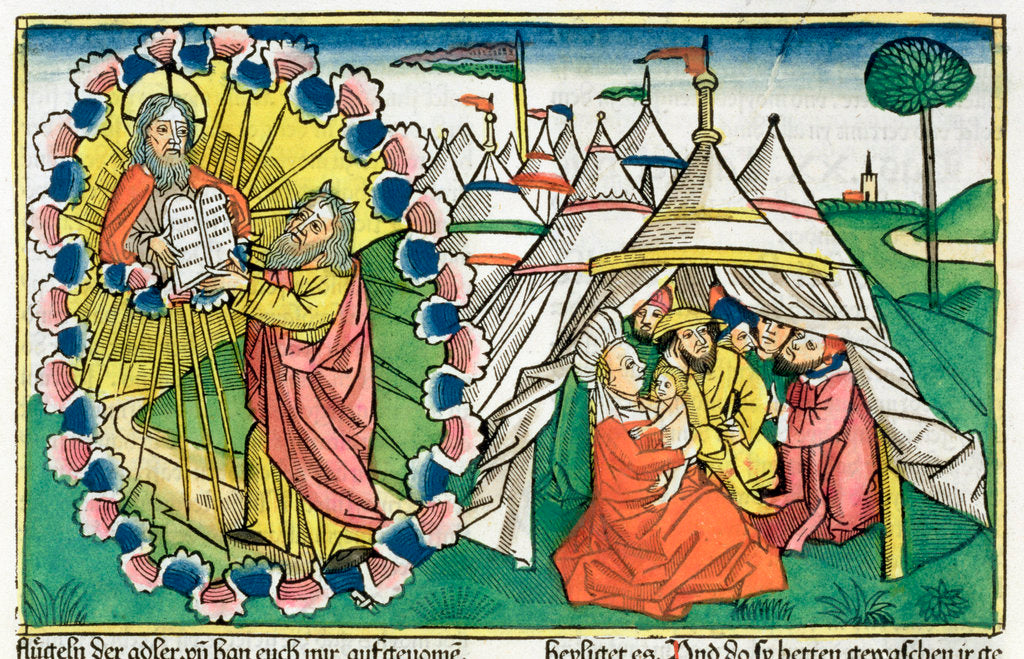 flúgeln der adler.vñ han euch mir aufgenomē.
heyliget es. Vnd do sy hetten gewaschen ir ge